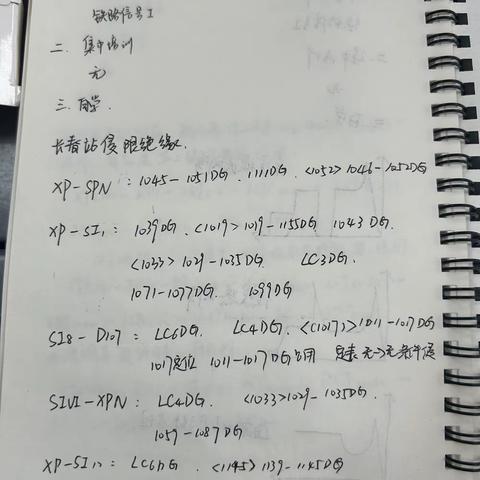 铁路信号 I
二. 集中培训
无
三. 自学.
长春站侵限绝缘.
XP-SPN : 1045-1051DG. 1111DG. <1052> 1046-1052DG
XP-SI1: 1039DG. <1019> 1019-1155DG 1043 DG.
<1033> 1029-1035DG. LC3DG.
1071-1077DG. 1099DG
SI8-D107: LC6DG. LC4DG. <(1017)> 1011-1017DG
1017定位 1011-1017DG占用
SIVI-XPN: LC4DG. <1033>1029-1035DG.
1059-1087DG
XP-SI12: LC6DG. <1145> 1139-1145DG